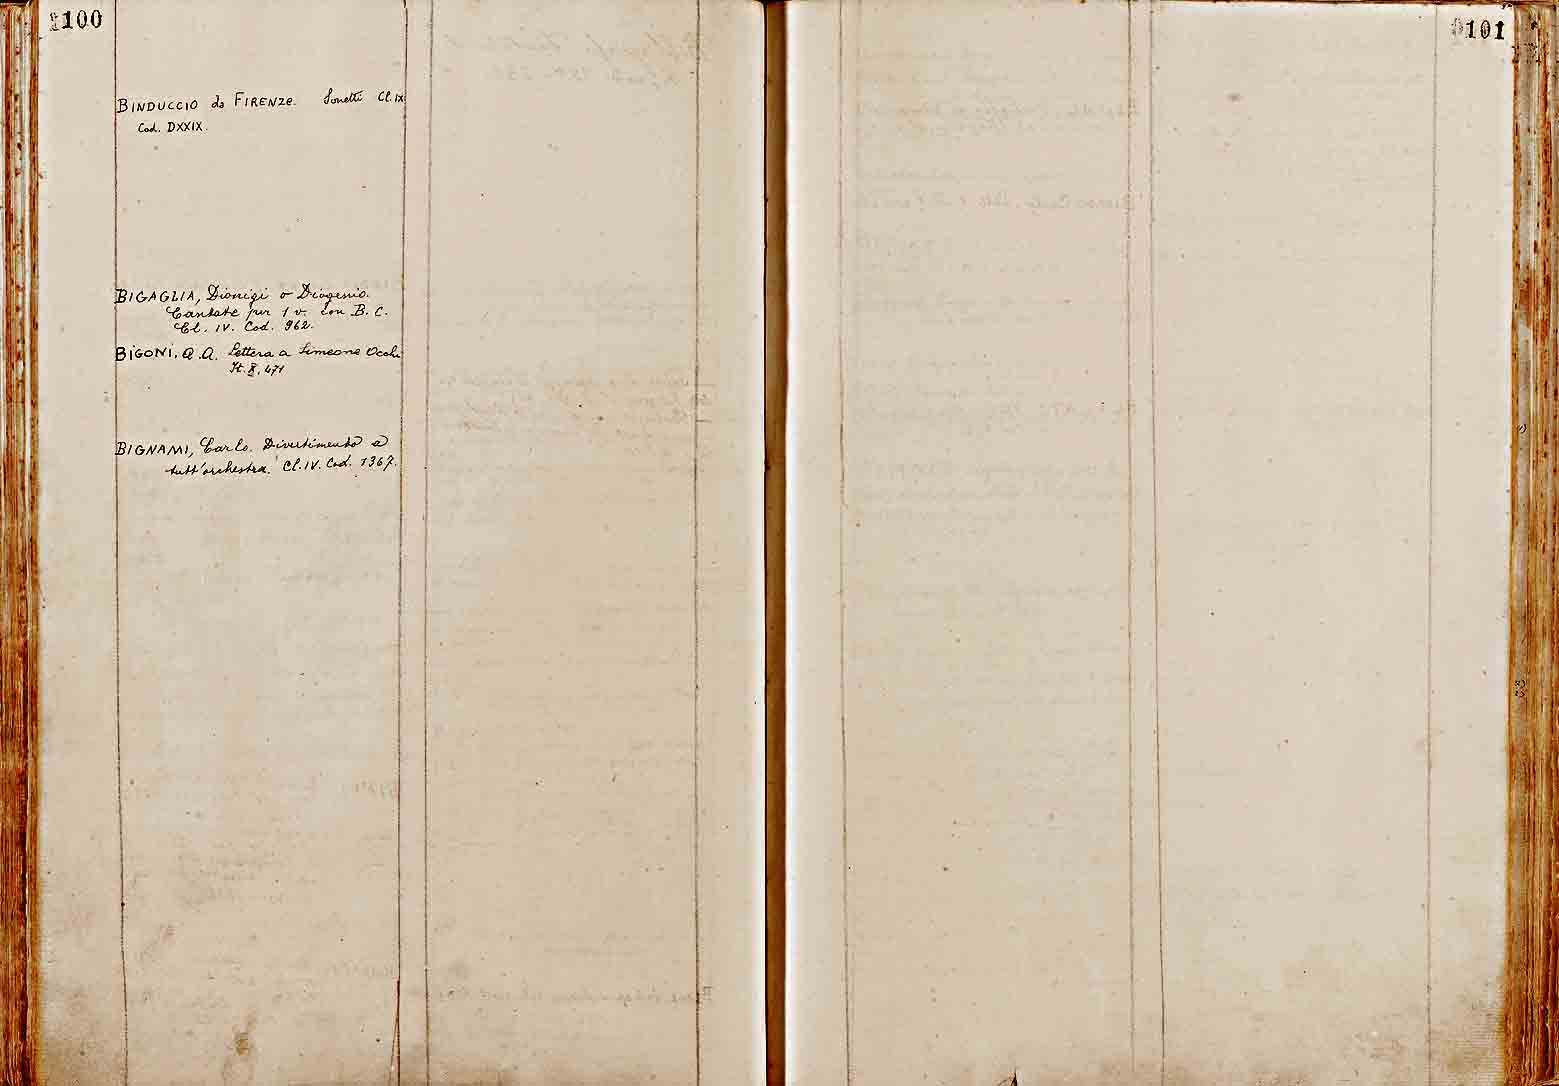 100
BINDUCCIO da FIRENZE. Sonetti Cl. IX
Cod. DXXIX.
BIGAGLIA, Dionigi o Diogenio.
Cantate per 1 v. con B. C.
Cl. IV. Cod. 962.
BIGONI, A. Lettera a Simeone Occhi
It. X, 471
BIGNAMI, Carlo. Divertimento a
tutt'orchestra. Cl. IV. Cod. 1367.
101